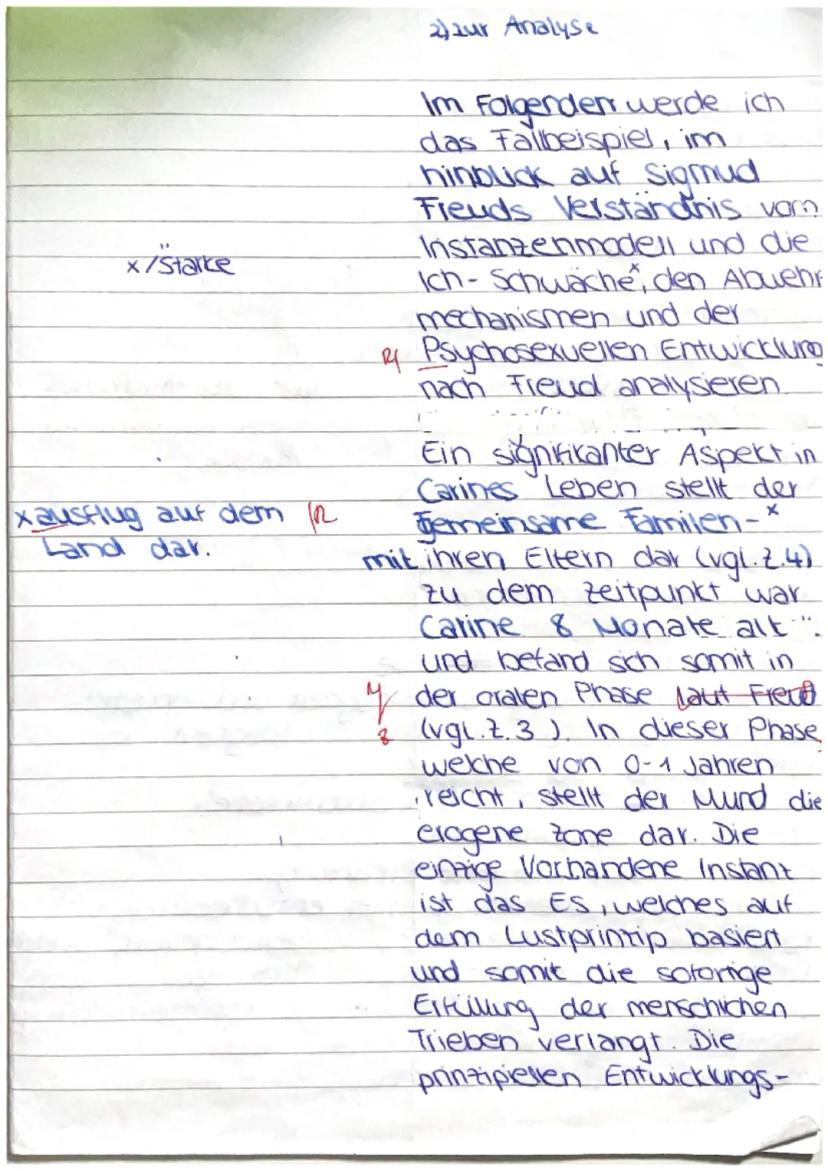 2) zur Analyse
Im Folgenden werde ich
das Fallbeispiel, im
hinblick auf Sigmud
Freuds Verständnis vom
Instanzenmodell und die
x /Stärke
Ich-Schwäche x, den Abwehr
mechanismen und der
R Psychosexuellen Entwicklung
nach Freud analysieren.
Ein signifikanter Aspekt in
Carines Leben stellt der
gemeinsame Familen- x
x ausflug auf dem R
Land dar.
mit ihren Eltern dar (vgl. z.4)
zu dem Zeitpunkt war
Carine 8 Monate alt ".
und befand sich somit in
der oralen Phase laut Freud
(vgl. z. 3 ). In dieser Phase
welche von 0-1 Jahren
reicht, stellt der Mund die
erogene Zone dar. Die
einzige Vorhandene Instanz
ist das Es, welches auf
dem Lustprinzip basiert
und somit die sofortige
Erfüllung der menschichen
Trieben verlangt. Die
prinzipiellen Entwicklungs-